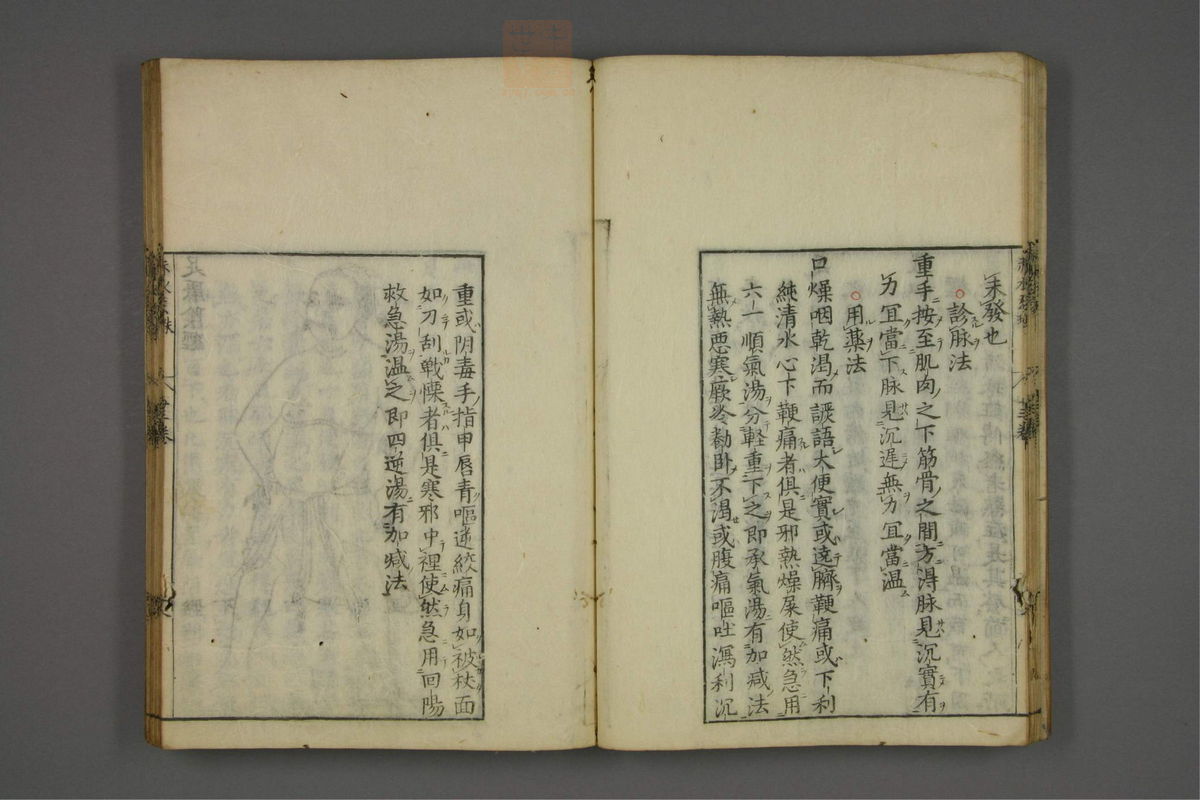 未發也
○診脉法
重手按至肌肉之下筋骨之間方得脉見沉實有
力宜當下脉見沉遲無力宜當温
○用藥法
口燥咽乾渴而譫語大便實或遶臍鞕痛或下利
純清水心下鞕痛者俱是邪熱燥屎使然急用
六一順氣湯分輕重下之即承氣湯有加减法
無熱悪寒厥冷勌卧不渴或腹痛嘔吐瀉利沉
重或阴毒手指甲唇青嘔逆絞痛身如被杖面
如刀刮戰慄者俱是寒邪中裡使然急用回陽
救急湯温之即四逆湯有加减法